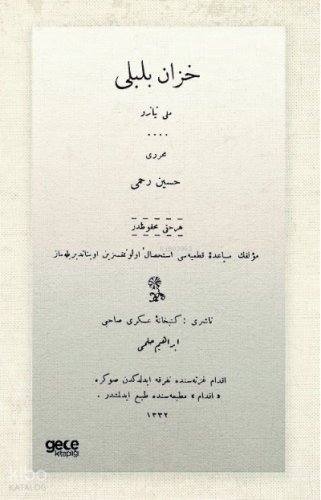 خزان بلبلی
ملی تیاترو
....
محرری
حسین رحمی
هر حقی محفوظدر
مؤلفك مساعدهٔ قطعیه‌سی استحصال اولونمقسزین اویناندیریله‌ماز
ناشری : کتبخانهٔ عسکری صاحبی
ابراهیم حلمی
اقدام غزته‌سنده تفرقه ایدلدکدن صوکره
« اقدام » مطبعه‌سنده طبع ایدلمشدر .
١٣٣٢
gece
kitaplığı
kibo
KATALOG